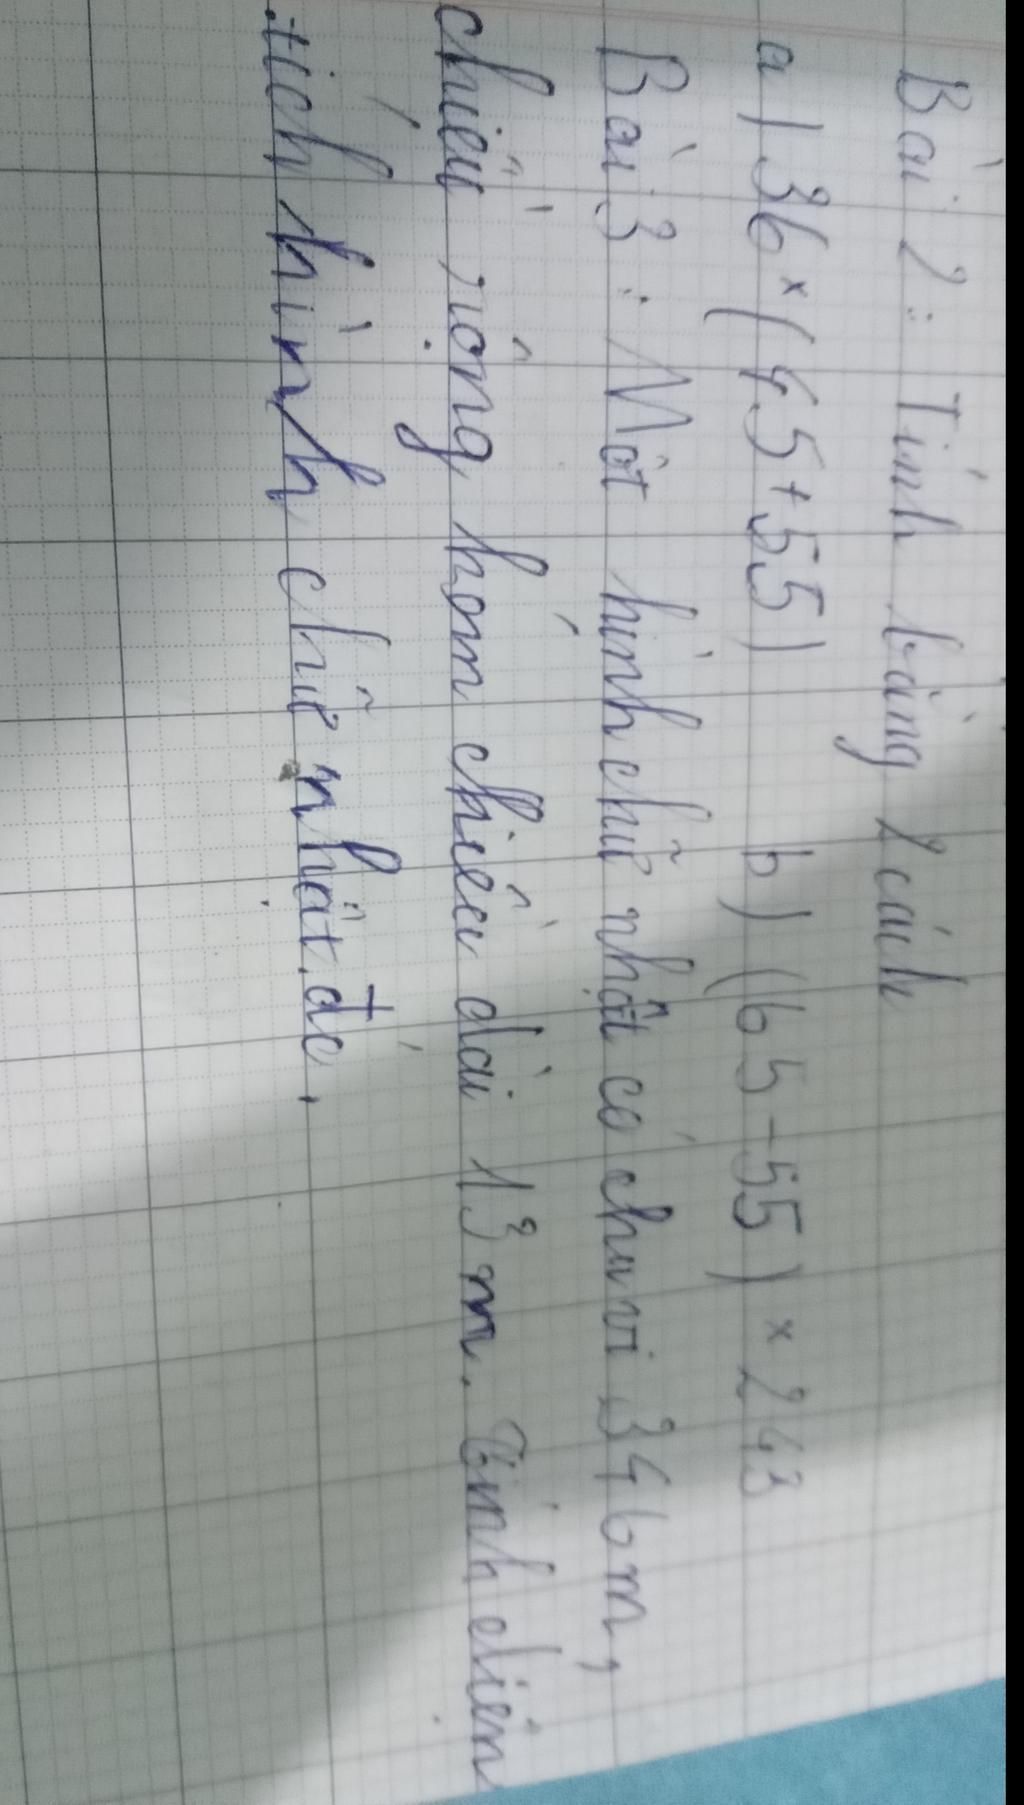 Bài 2: Tính bằng 2 cách
a) 36 × (45 + 55) b) (65 - 55) × 243
Bài 3: Một hình chữ nhật có chu vi 346m,
chiều rộng hơn chiều dài 13m. Tính diện
tích hình chữ nhật đó.